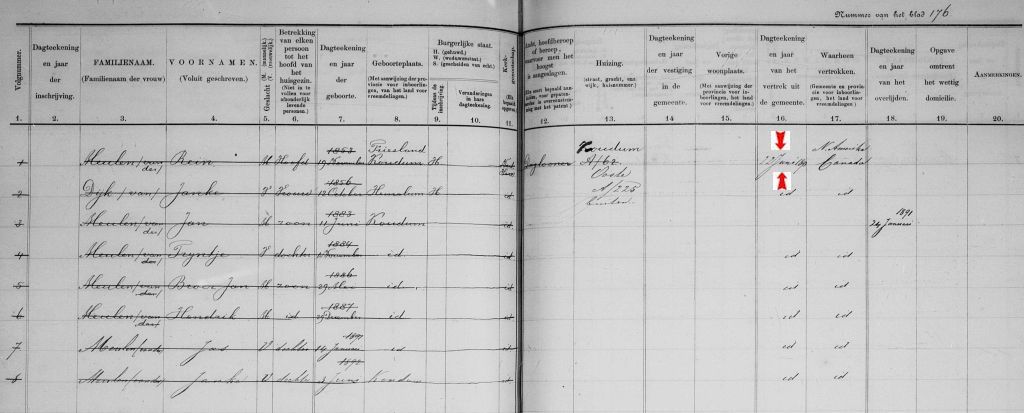 Nummer van het blad 176
Volgnummer.
Dagteekening en jaar der inschrijving.
FAMILIENAAM.
(Familienaam der vrouw)
VOORNAMEN.
(Voluit geschreven.)
Geslacht (M. (mannelijk.) V. (vrouwelijk.)
Betrekking van elken persoon tot het hoofd van het huisgezin.
(Niet in te vullen voor afzonderlijk levende personen.)
Dagteekening en jaar der geboorte.
Geboorteplaats.
(Met aanwijzing der provincie voor inboorlingen, van het land voor vreemdelingen.)
Burgerlijke staat.
H. (gehuwd.)
W. (weduwenstaat.)
S. (gescheiden van echt.)
Tijdens de inschrijving.
Veranderingen in hare dagteekening.
Kerkgenootschap.
Ambt, hoofdberoep of beroep, waarvoor men het hoogst is aangeslagen.
Huizing.
(straat, gracht, enz. huisnummer.)
Dagteekening en jaar der vestiging in de gemeente.
Vorige woonplaats.
(Met aanwijzing der provincie voor inboorlingen, het land voor vreemdelingen.)
Dagteekening en jaar van het vertrek uit de gemeente.
Waarheen vertrokken.
(Gemeente en provincie voor inboorlingen, het land voor vreemdelingen.)
Dagteekening en jaar van het overlijden.
Opgave omtrent het wettig domicilie.
AANMERKINGEN.
1. 2. 3. 4. 5. 6. 7. 8. 9. 10. 11. 12. 13. 14. 15. 16. 17. 18. 19. 20.
1853 Friesland Koudum N. Amerika
1 Meulen /van der/ Rein M Hoofd 19 November Koudum H Daglooner A/62 Canada
1856 Ooste
2 Dijk /van/ Janke V Vrouw 12 October Hemelum H A/225 id id
1883 1891
3 Meulen /van der/ Jan M zoon 11 Juni Koudum id 24 Januari
1884
4 Meulen /van der/ Tryntje V dochter November id id id id
1886
5 Meulen /van der/ Broer Jan M zoon 29 id id id id
1887
6 Meulen /van der/ Hendrik M id December id id id id
1891
7 Meulen V dochter 14 Januari id id id id
8 Meulen /van der/ Janke V dochter Juni Koudum id id id